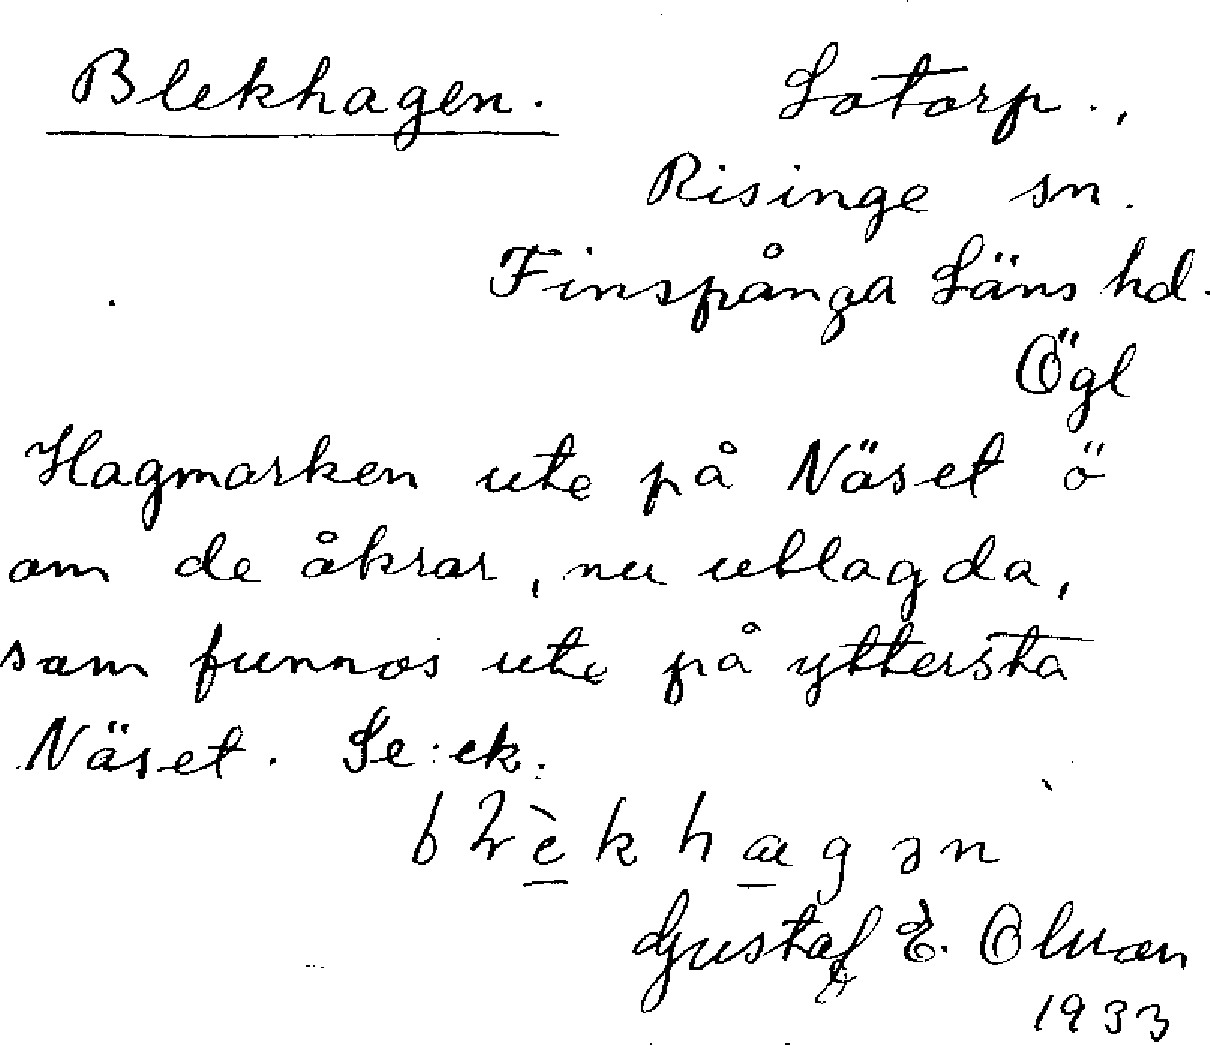 Blekhagen. Lotorp.,
Risinge sn.
Finspånga Läns hd.
Ögl
Hagmarken ute på Näset ö
om de åkrar, nu utlagda,
som funnos ute på yttersta
Näset. Se: ek.
Gustaf E. Olsson
1933